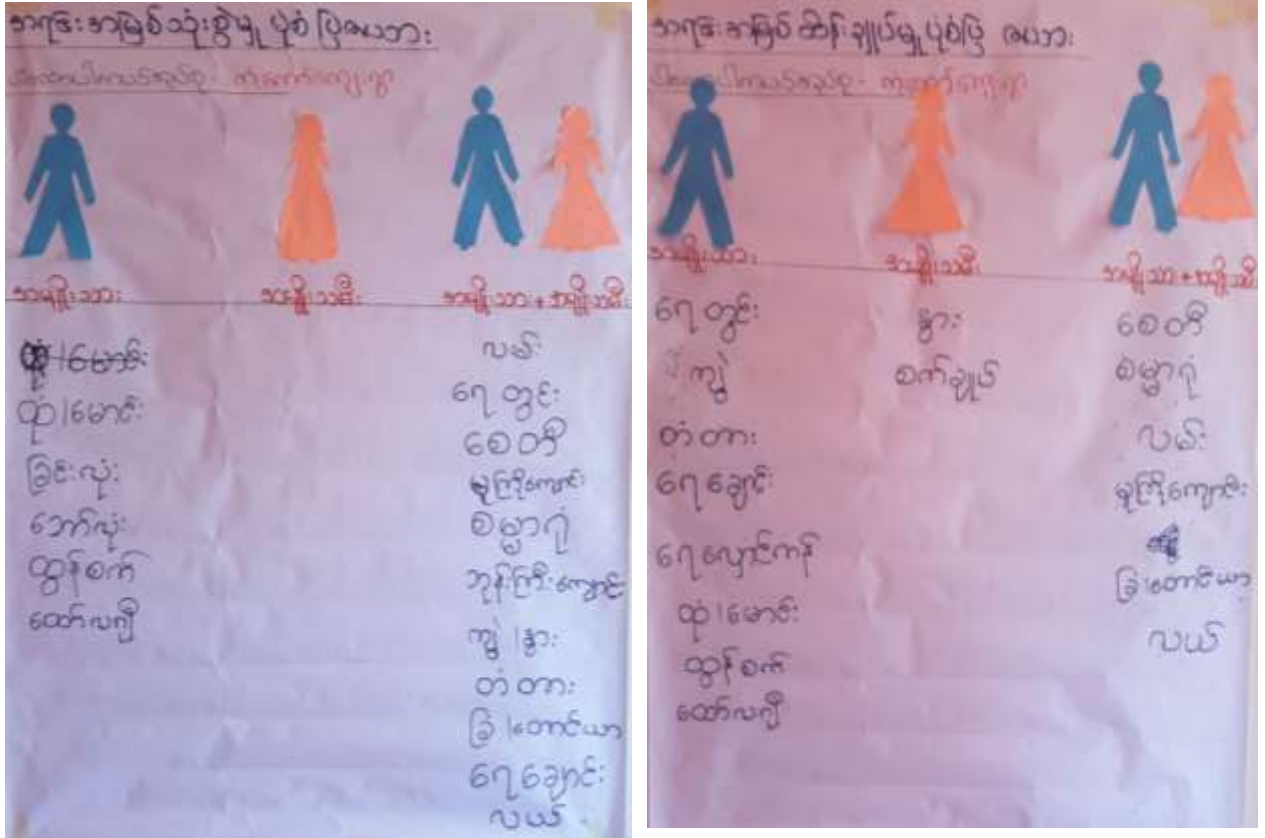 အရင်းအမြစ်သုံးစွဲမှု ပုံစံပြဇယား
အမျိုးသား အမျိုးသမီး အမျိုးသား + အမျိုးသမီး
ထုံ/မောင်း
ထုံ/မောင်း
ခြင်းလုံး
ဘော်လုံး
ထွန်စက်
ထော်လဂျီ
လမ်း
ရေတွင်း
စေတီ
မူကြိုကျောင်း
ဓမ္မာရုံ
ဘုန်းကြီးကျောင်း
ကျွဲ/နွား
တံတား
ခြံ/တောင်ယာ
ရေချောင်း
လယ်
အရင်းအမြစ်ထိန်းချုပ်မှုပုံစံပြ ဇယား
အမျိုးသား အမျိုးသမီး အမျိုးသား + အမျိုးသမီး
ရေတွင်း
ကျွဲ
တံတား
ရေချောင်း
ရေလှောင်ကန်
ထုံ/မောင်း
ထွန်စက်
ထော်လဂျီ
နွား
စက်ချုပ်
စေတီ
ဓမ္မာရုံ
လမ်း
မူကြိုကျောင်း
ခြံ/တောင်ယာ
လယ်